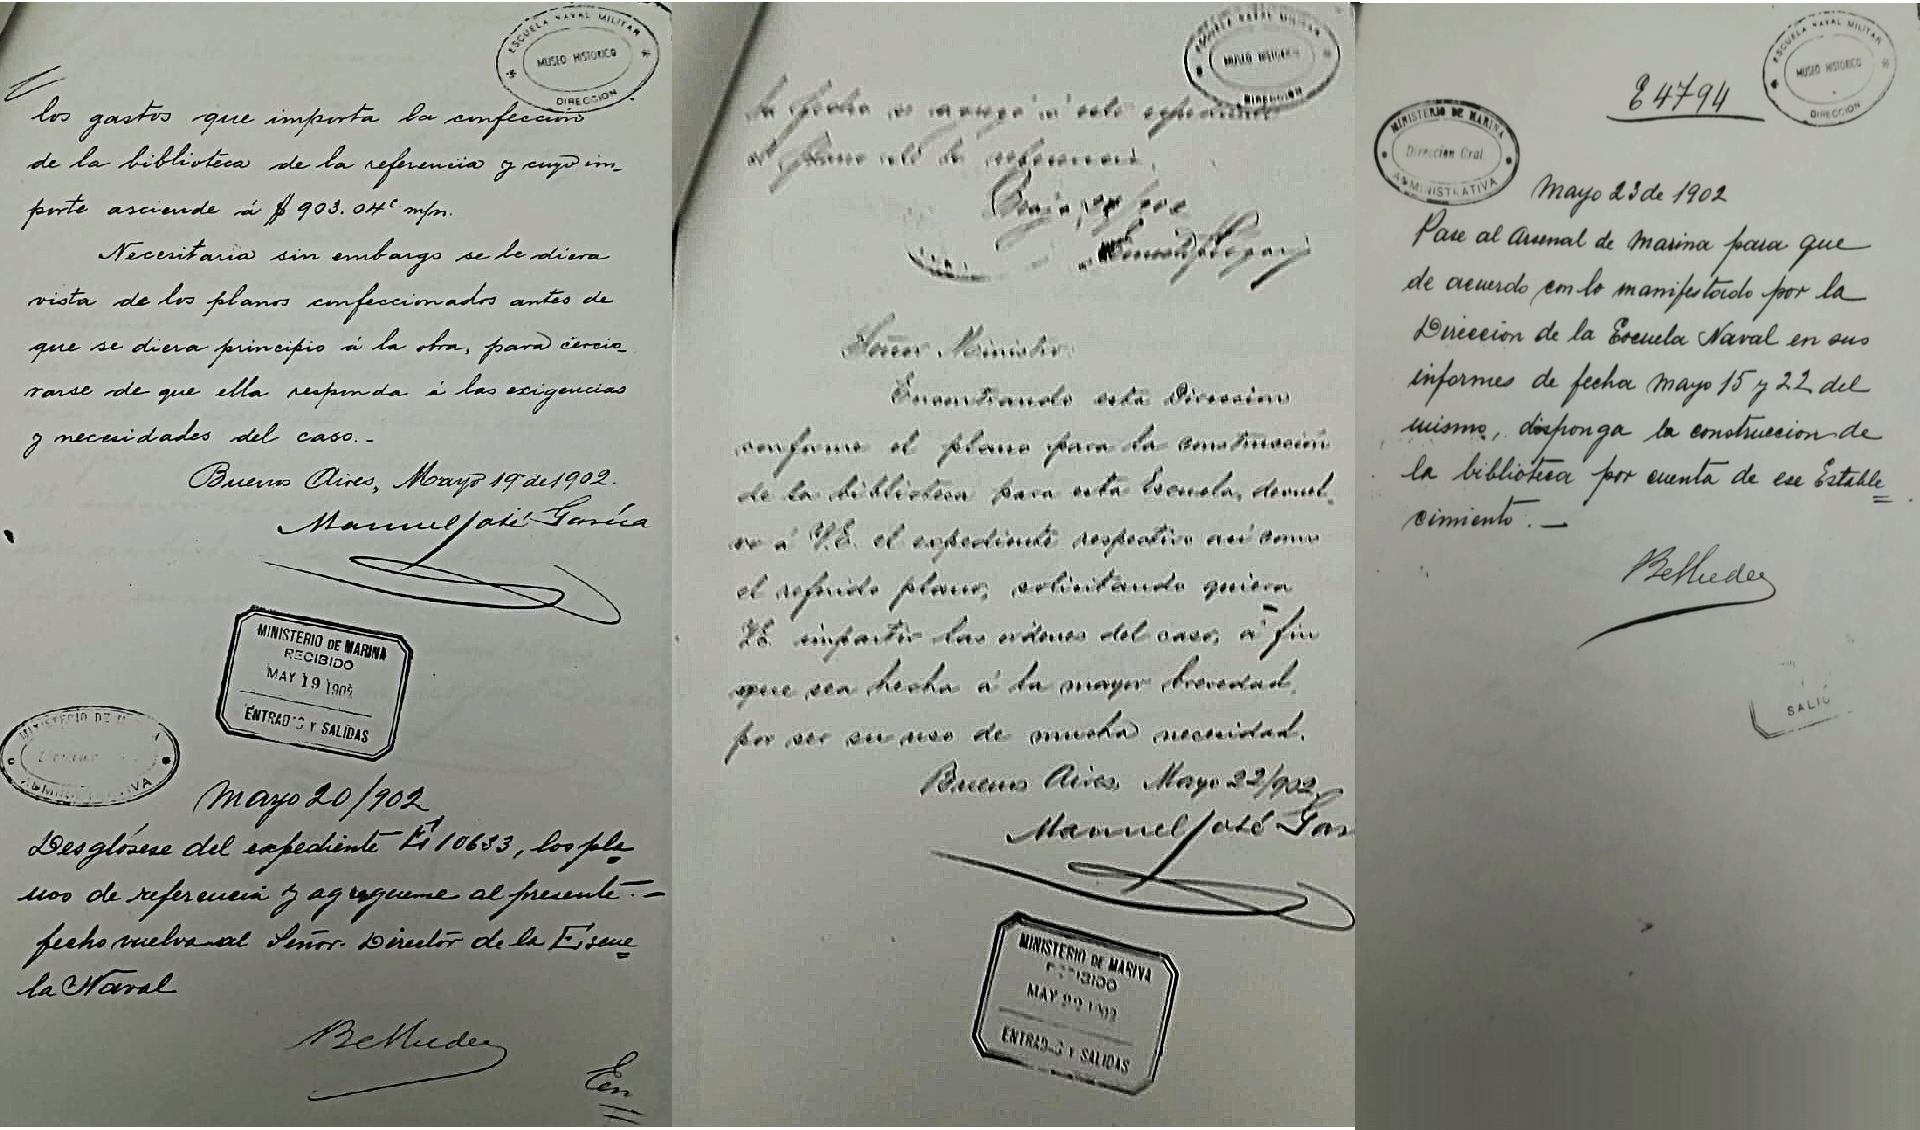 ESCUELA NAVAL MILITAR
MUSEO HISTORICO
DIRECCION
los gastos que importa la confección
de la biblioteca de la referencia y cuyo im-
porte asciende á $ 903.04c m/n.
Necesitaria sin embargo se le diera
vista de los planos confeccionados antes de
que se diera principio á la obra, para cercio-
rarse de que ella responda á las exigencias
y necesidades del caso.-
Buenos Aires, Mayo 19 de 1902.
Manuel José García
MINISTERIO DE MARINA
RECIBIDO
MAY 19 1902
ENTRADAS Y SALIDAS
MINISTERIO DE MARINA
ADMINISTRATIVA
Mayo 20/902
Desglósese del expediente 10633, los pla=
nos de referencia y agreguense al presente.-
fecho vuelva al Señor Director de la Escue=
la Naval
Betbeder
En
ESCUELA NAVAL MILITAR
MUSEO HISTORICO
DIRECCION
la fecha se agregó á este expediente
el plano de la referencia.
Señor Ministro:
Encontrando esta Direccion
conforme el plano para la construcción
de la biblioteca para esta Escuela, devuel-
vo á V.E. el expediente respectivo así como
el referido plano, solicitando quiera
V.E. impartir las ordenes del caso, á fin
que sea hecha á la mayor brevedad,
por ser su uso de mucha necesidad.
Buenos Aires, Mayo 22/902
Manuel José Gar
MINISTERIO DE MARINA
RECIBIDO
MAY 22 1902
ENTRADAS Y SALIDAS
ESCUELA NAVAL MILITAR
MUSEO HISTORICO
DIRECCION
E 4794
MINISTERIO DE MARINA
Direccion Gral.
ADMINISTRATIVA
Mayo 23 de 1902
Pase al Arsenal de Marina para que
de acuerdo con lo manifestado por la
Direccion de la Escuela Naval en sus
informes de fecha Mayo 15 y 22 del
mismo, disponga la construccion de
la biblioteca por cuenta de ese Estable=
cimiento.-
Betbeder
SALIO